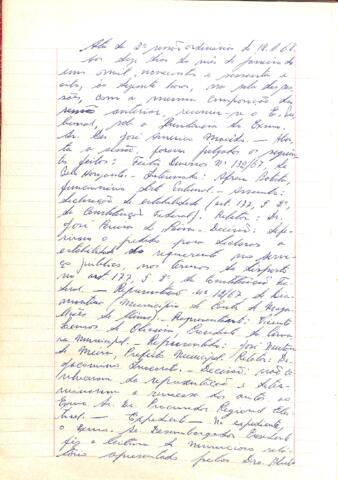 Ata da 2ª sessão ordinária de 18.1.68.
Aos dezoito dias do mês de janeiro de
um mil, novecentos e sessenta e
oito, às dezoito horas, na sala das ses-
sões, com a mesma composição da
sessão anterior, reuniu-se o E. Tri-
bunal, sob a Presidência do Exmo.
Sr. Des. José Americo Macedo. — Aber-
ta a sessão, foram julgados os seguin-
tes feitos: — Feitos Diversos nº 132/67, de
Belo Horizonte. — Interessado: Afonso
funcionário deste Tribunal. — Assunto:
declaração de estabilidade (art. 177, § 2º,
da Constituição Federal). Relator: Dr.
José Pereira de Paiva. — Decisão: Defe-
riram o pedido para declarar a
estabilidade do requerente no servi-
ço público, nos termos do disposto
no art. 177, § 2º da Constituição Fe-
deral. — Representação nº 10/67, de
(Município de Conde de
de Minas). — Representante: Vicente
Lemos de Oliveira, Presidente da Câma-
ra Municipal. — Representado: José
de Moura, Prefeito Municipal. Relator: Dr.
— Decisão: não co-
nheceram da representação e deter-
minaram a remessa dos autos ao
Exmo. Sr. Dr. Procurador Regional Elei-
toral. — Expediente — No expediente,
o Exmo. Sr. Desembargador Presidente
fez a leitura de numerosos rela-
tórios apresentados pelos Drs.